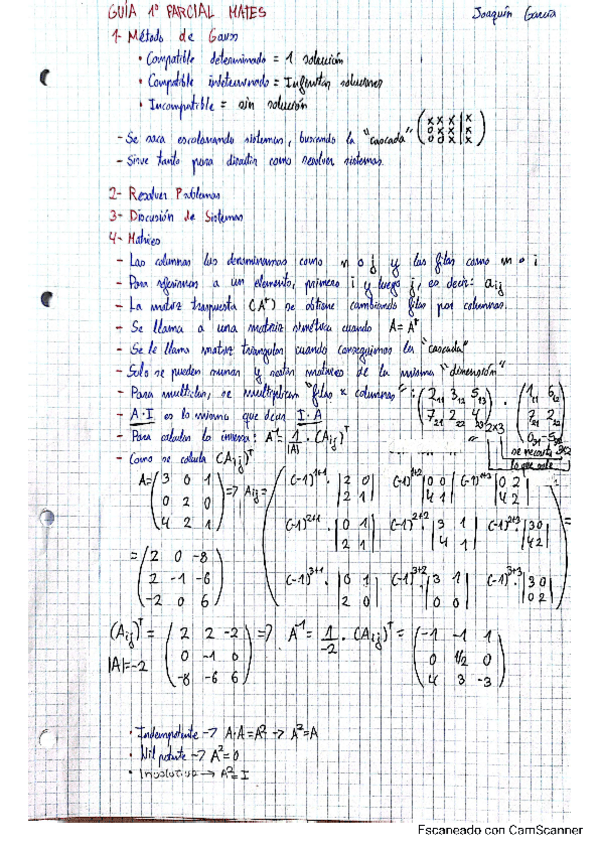 GUÍA 1º PARCIAL MATES Joaquín García
1- Método de Gauss
• Compatible determinado = 1 solución
• Compatible indeterminado = Infinitas soluciones
• Incompatible = sin solución
- Se saca escalonando sistemas, buscando la "cascada" (x x x | x
0 x x | x
0 0 x | x)
- Sirve tanto para discutir como resolver sistemas.
2- Resolver Problemas
3- Discusión de Sistemas
4- Matrices
- Las columnas las denominamos como n o j y las filas como m o i
- Para referirnos a un elemento, primero i y luego j, es decir: aij
- La matriz traspuesta (A^t) se obtiene cambiando filas por columnas.
- Se llama a una matriz simétrica cuando A = A^t
- Se le llama matriz triangular cuando conseguimos la "cascada"
- Solo se pueden sumar y restar matrices de la misma "dimensión"
- Para multiplicar, se multiplican "filas x columnas": (2₁₁ 3₁₂ 5₁₃
7₂₁ 2₂₂ 4₂₃)2x3 · (1₁₁ 5₁₂
7₂₁ 2₂₂
0₃₁ -5₃₂)3x2
- A·I es lo mismo que decir I·A
se necesita
- Para calcular la inversa: A⁻¹ = 1/|A| · (Aij)^T
- Como se calcula (Aij)^T
A = (3 0 1
0 2 0
4 2 1) => Aij =
((-1)^1+1 · |2 0
2 1| (-1)^1+2 |0 0
4 1| (-1)^1+3 |0 2
4 2|
(-1)^2+1 · |0 1
2 1| (-1)^2+2 · |3 1
4 1| (-1)^2+3 · |3 0
4 2|
(-1)^3+1 · |0 1
2 0| (-1)^3+2 · |3 1
0 0| (-1)^3+3 · |3 0
0 2|) =
= (2 0 -8
2 -1 -6
-2 0 6)
(Aij)^T = (2 2 -2
0 -1 0
-8 -6 6) => A⁻¹ = 1/-2 · (Aij)^T = (-1 -1 1
0 1/2 0
4 3 -3)
|A| = -2
• Indempotente -> A·A = A² -> A² = A
• Nilpotente -> A² = 0
• Involutiva -> A² = I
Escaneado con CamScanner